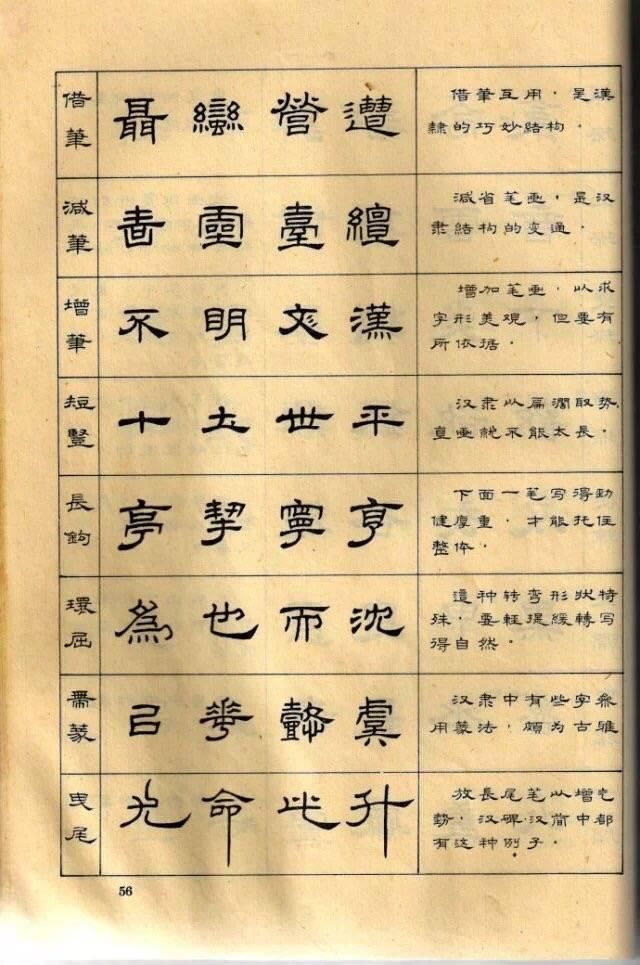 借筆
聶 蠻 營 遭
借筆互用，是漢
隸的巧妙结构．
減筆
書 靈 臺 繵
減省笔画，是汉
隶結构的变通．
增筆
不 明 文 漢
增加笔画，以求
字形美观，但要有
所依据．
短豎
十 土 世 平
汉隶以扁濶取势，
直画就不能太長．
長鉤
亭 挈 寧 亨
下面一笔写得劲
健厚重，才能托住
整体．
環屈
為 也 而 沈
這种转弯形状特
殊，要輕提緩轉写
得自然．
篆
己 華 懿 虞
汉隶中有些字参
用篆法，頗为古雅
曳尾
光 命 此 升
放長尾笔以增
勢，汉碑汉简中都
有这种例子．
56